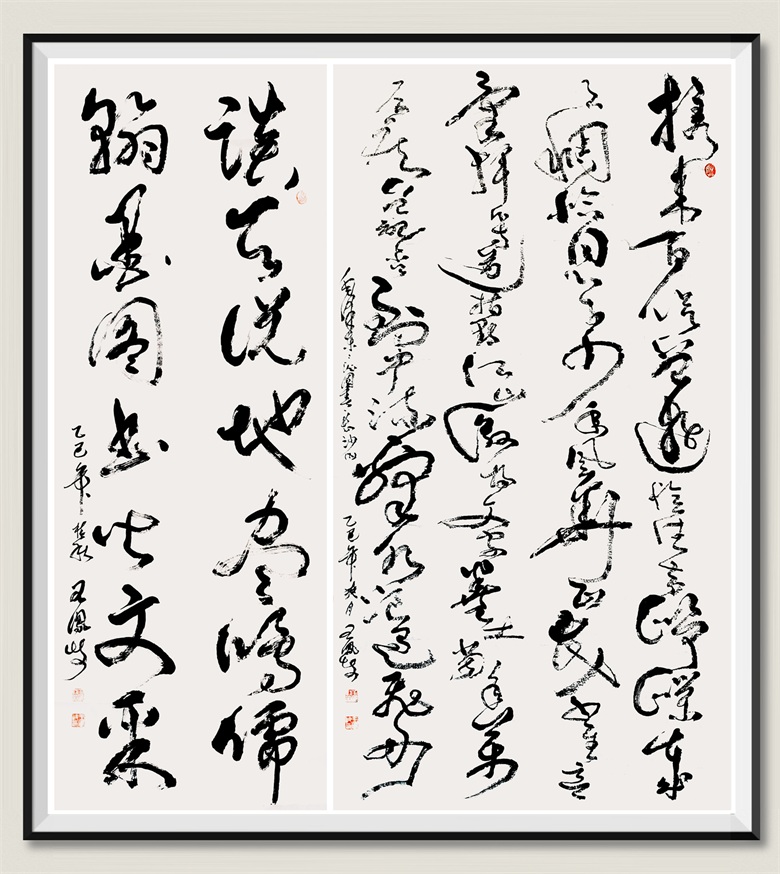 携来百侣曾游忆往昔峥嵘岁
月稠恰同学少年风华正茂书生意
气挥斥方遒指点江山激扬文字粪土当年万
户侯曾记否到中流击水浪遏飞舟
毛泽东沁园春长沙句 乙巳年
谈天说地尽鸿儒
翰墨图书皆文采
乙巳年